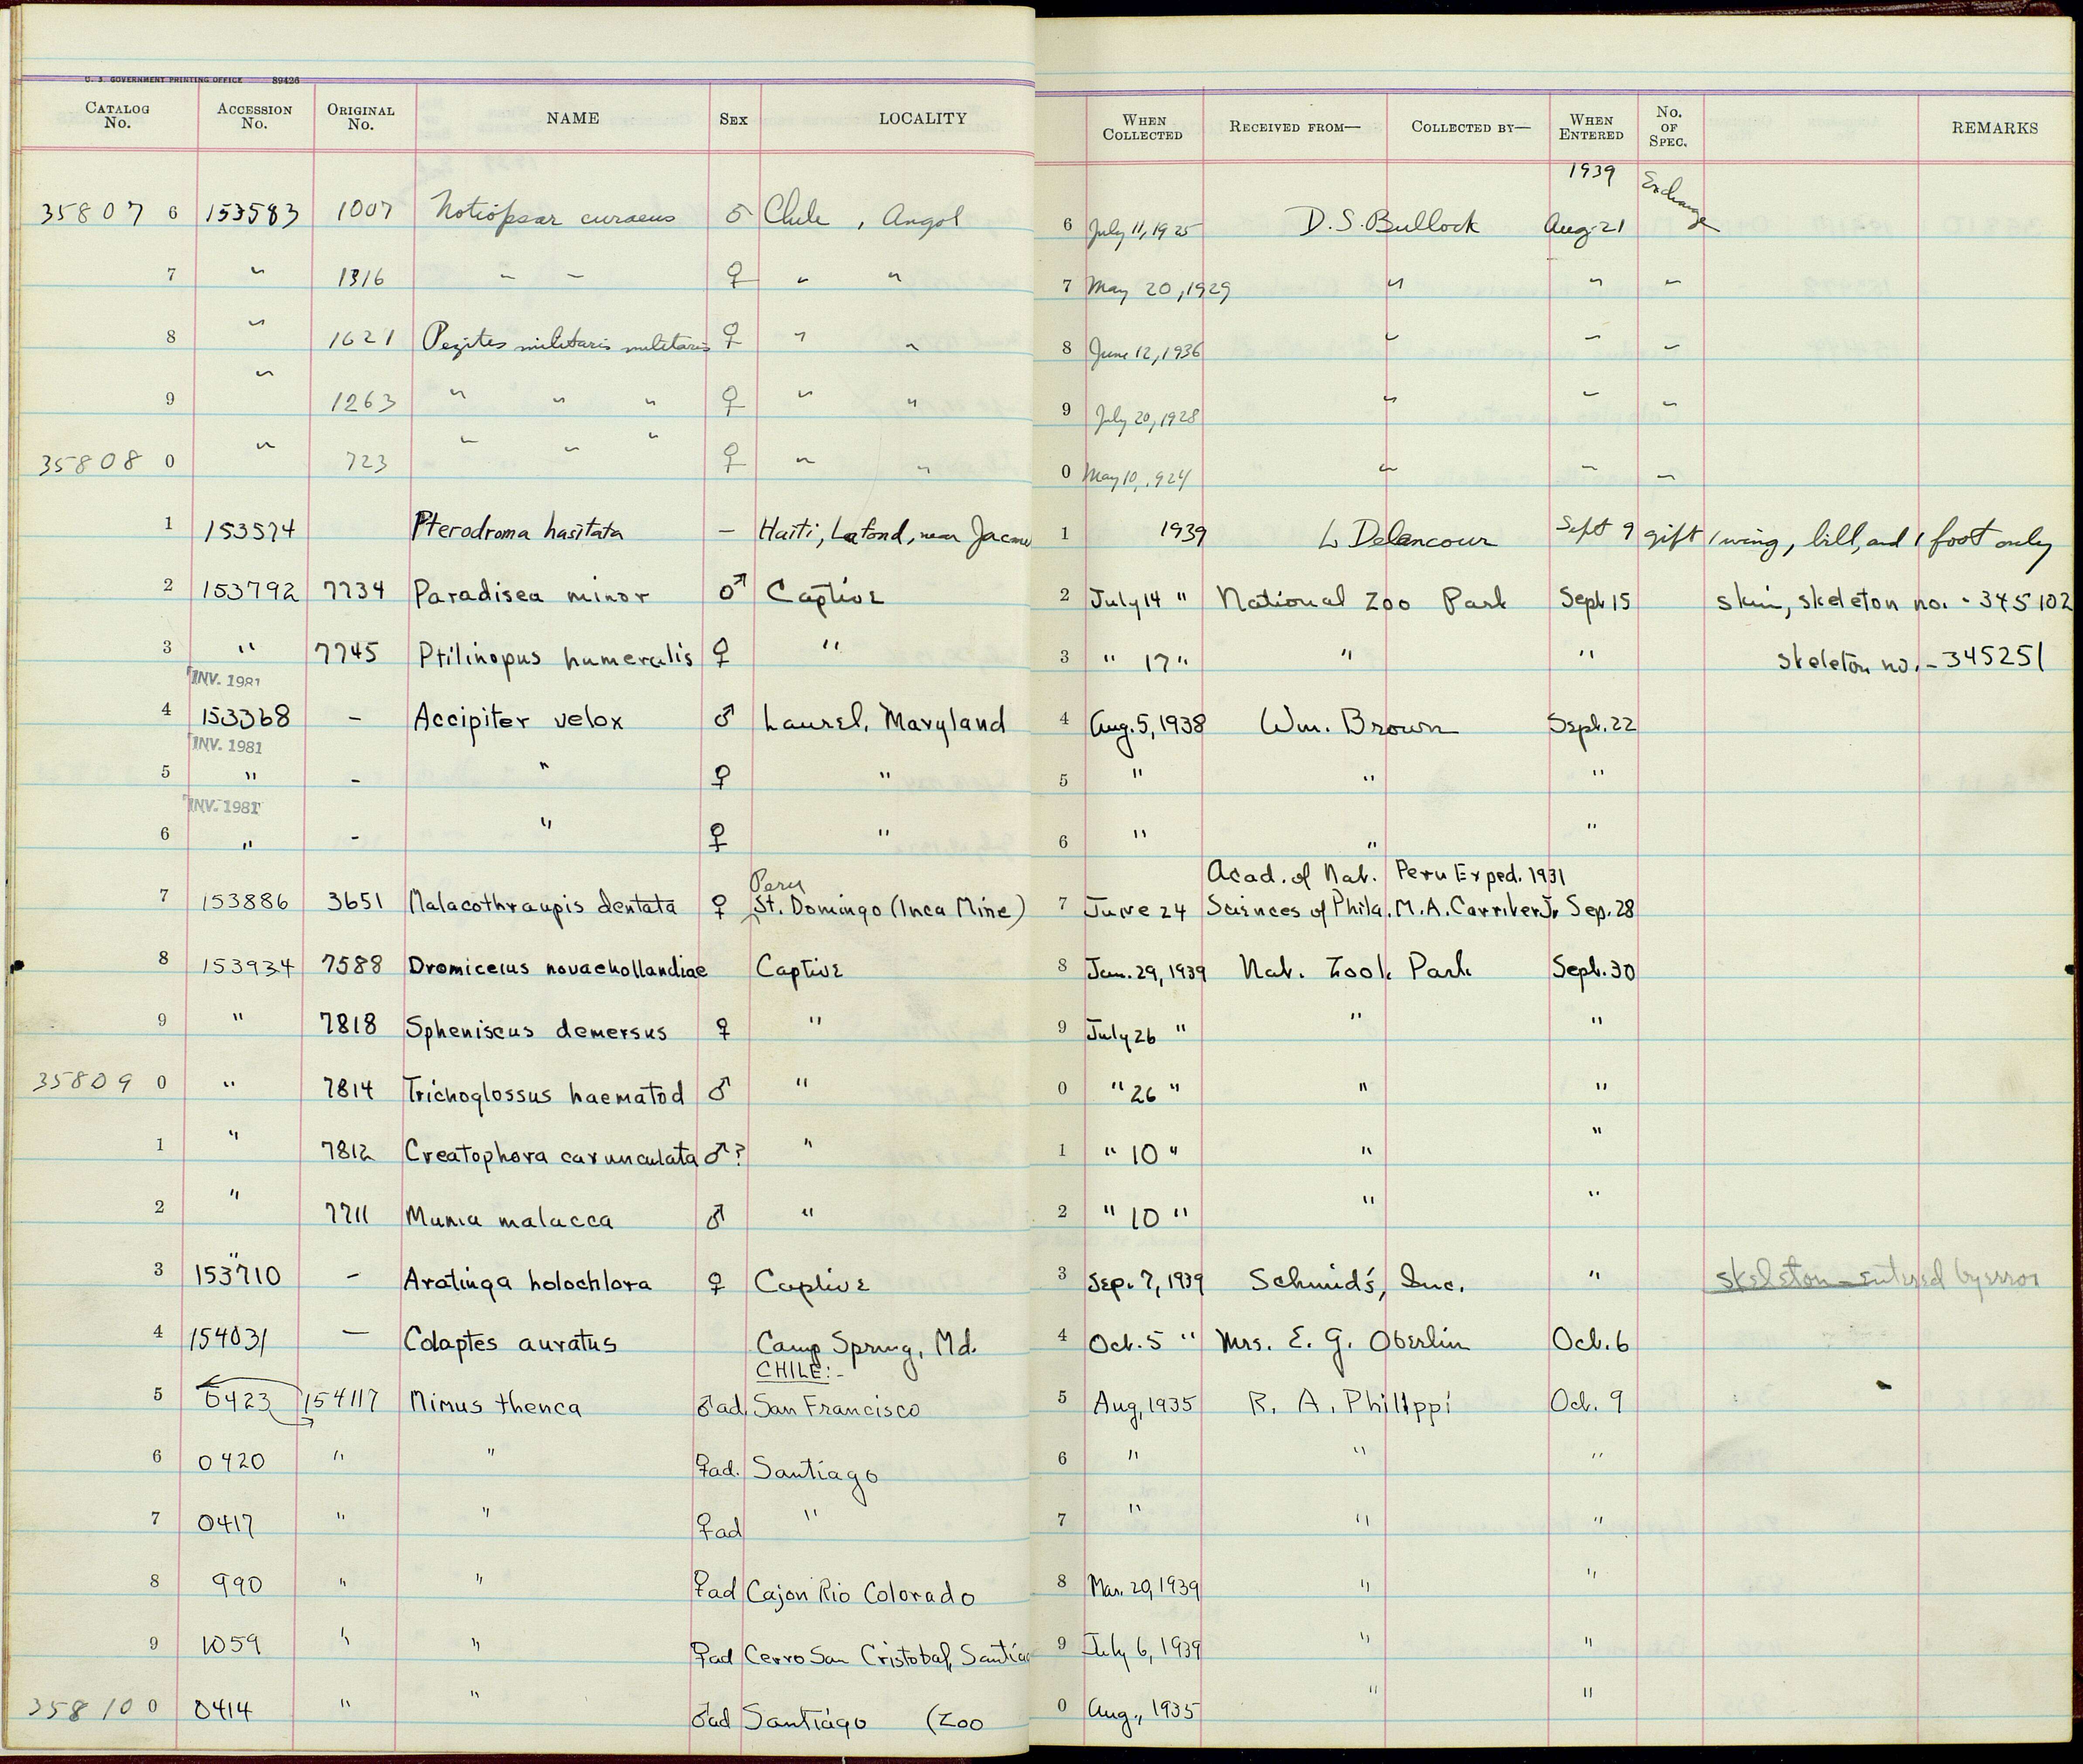 U. S. GOVERNMENT PRINTING OFFICE 89426
CATALOG No. ACCESSION No. ORIGINAL No. NAME SEX LOCALITY WHEN COLLECTED RECEIVED FROM— COLLECTED BY— WHEN ENTERED No. OF SPEC. REMARKS
1939
35807 6 153583 1007 Notiopsar curaeus ♂ Chile, Angol 6 July 11, 1925 D. S. Bullock Aug. 21 Exchange
7 " 1316 " " ♀ " " 7 May 20, 1929 " " "
8 " 1621 Pezites militaris militaris ♀ " " 8 June 12, 1936 " " "
9 " 1263 " " " ♀ " " 9 July 20, 1928 " " "
35808 0 " 723 " " " ♀ " " 0 May 10, 1924 " " "
1 153574 Pterodroma hasitata – Haiti, Lafond, near Jacme 1 1939 L Delancour Sept 9 gift 1 wing, bill, and 1 foot only
2 153792 7734 Paradisea minor ♂ Captive 2 July 14 " National Zoo Park Sept 15 skin, skeleton no. - 345102
3 " 7745 Ptilinopus humeralis ♀ " 3 " 17 " " " skeleton no. - 345251
INV. 1981
4 153368 – Accipiter velox ♂ Laurel, Maryland 4 Aug. 5, 1938 Wm. Brown Sept. 22
INV. 1981
5 " - " ♀ " 5 " " "
INV. 1981
6 " - " ♀ " 6 " " "
Peru Acad. of Nat. Peru Exped. 1931
7 153886 3651 Malacothraupis dentata ♀ St. Domingo (Inca Mine) 7 June 24 Sciences of Phila. M. A. Carriker Jr Sep. 28
8 153934 7588 Dromiceius novaehollandiae Captive 8 Jan. 29, 1939 Nat. Zool. Park Sept. 30
9 " 7818 Spheniscus demersus ♀ " 9 July 26 " " "
35809 0 " 7814 Trichoglossus haematod ♂ " 0 " 26 " " "
1 " 7812 Creatophora carunculata ♂? " 1 " 10 " " "
2 " 7711 Munia malacca ♂ " 2 " 10 " " "
3 153710 – Aratinga holochlora ♀ Captive 3 Sep. 7, 1939 Schmid's, Inc. " skeleton – entered by error
4 154031 — Colaptes auratus Camp Spring, Md. 4 Oct. 5 " Mrs. E. G. Oberlin Oct. 6
CHILE:-
5 0423 154117 Mimus thenca ♂ad. San Francisco 5 Aug, 1935 R. A. Philippi Oct. 9
6 0420 " " ♀ad. Santiago 6 " " "
7 0417 " " ♀ad " 7 " " "
8 990 " " ♀ad Cajon Rio Colorado 8 Mar. 20, 1939 " "
9 1059 " " ♀ad Cerro San Cristobal, Santia 9 July 6, 1939 " "
35810 0 0414 " " ♂ad Santiago (Zoo 0 Aug., 1935 " "